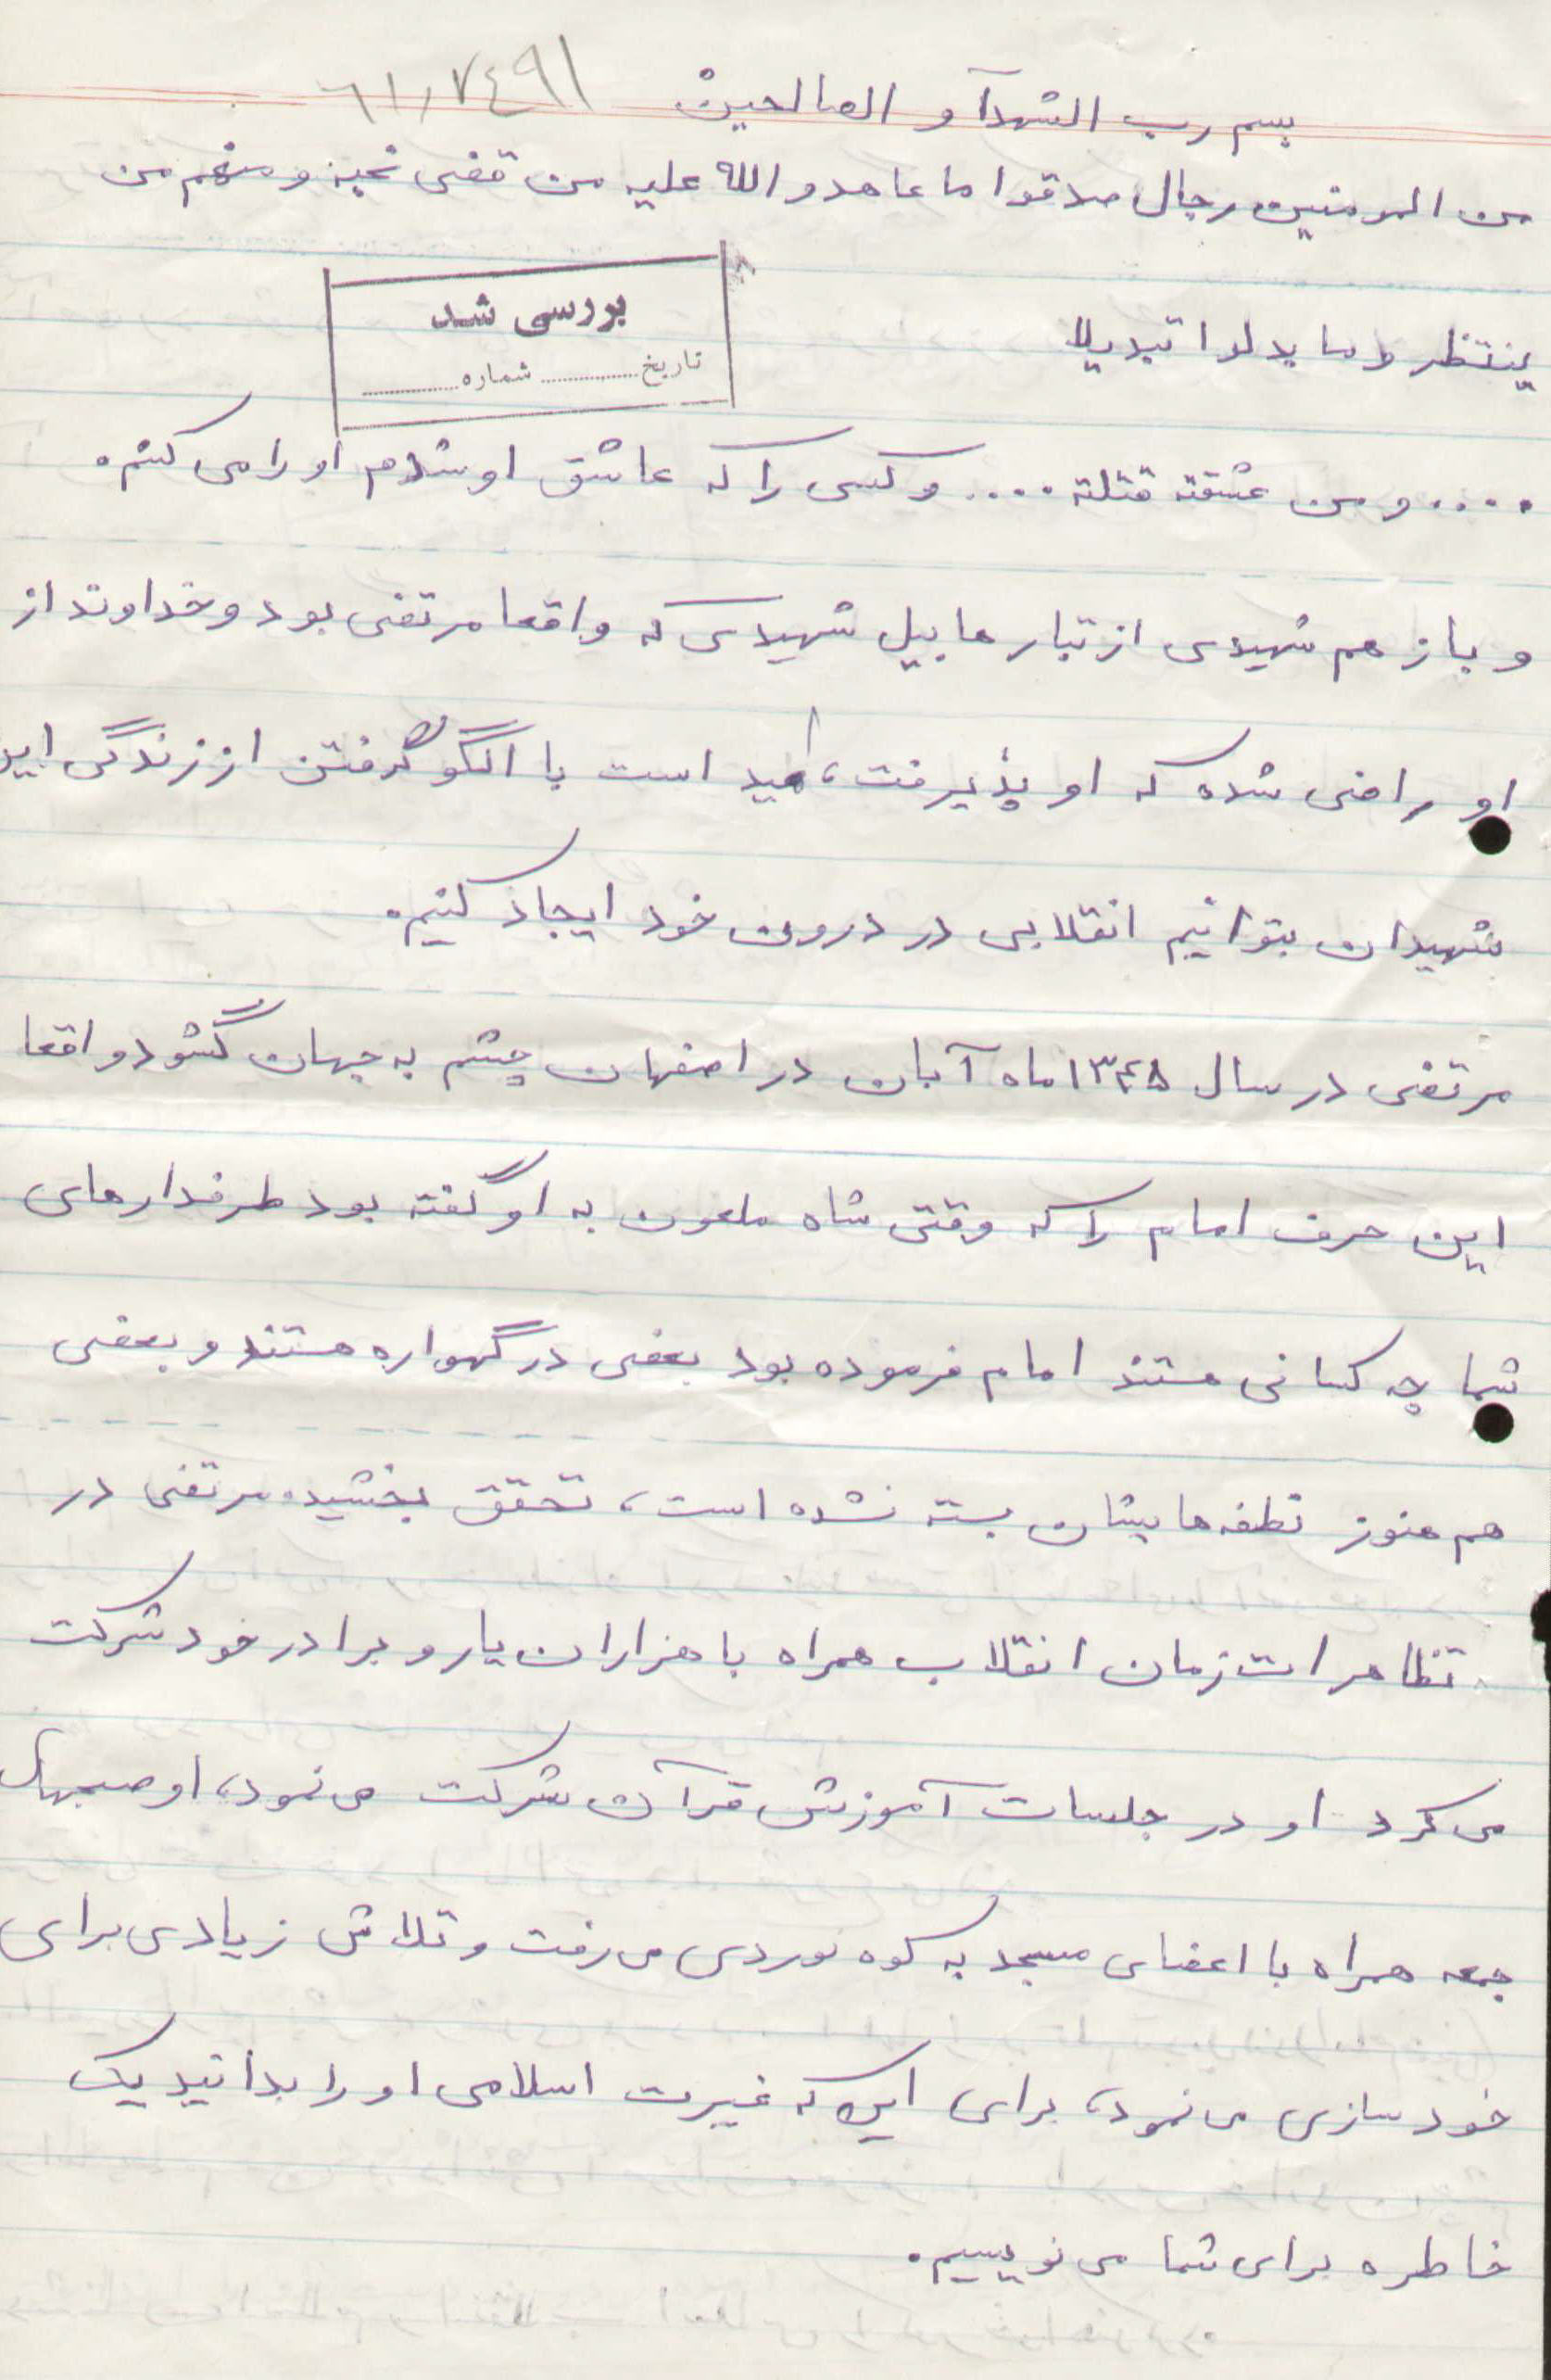 ۶۱۱۷٤۹۱
بسم رب الشهدآ و الصالحین
من المومنین رجال صدقوا ما عاهدوالله علیه من قضی نحبه و منهم من
بررسی شد
تاریخ ............ شماره ............
ینتظر و ما بدلوا تبدیلا
.... و من عشقته قتلته .... و کسی را که عاشق او شدم او را می کشم.
و باز هم شهیدی از تبار هابیل شهیدی که واقعا مرتضی بود و خداوند از
او راضی شده که او پذیرفت، امید است با الگو گرفتن از زندگی این
شهیدان بتوانیم انقلابی در درون خود ایجاد کنیم.
مرتضی در سال ۱۳۴۸ ماه آبان در اصفهان چشم به جهان گشود و اقعا
این حرف امام را که وقتی شاه ملعون به او گفته بود طرفدارهای
شما چه کسانی هستند امام فرموده بود بعضی در گهواره هستند و بعضی
هم هنوز نطفه هایشان بسته نشده است، تحقق بخشید. مرتضی در
تظاهرات زمان انقلاب همراه با هزاران یار و برادر خود شرکت
می کرد او در جلسات آموزش قرآن شرکت می نمود، او صبحهای
جمعه همراه با اعضای مسجد به کوه نوردی می رفت و تلاش زیادی برای
خود سازی می نمود، برای این که غیرت اسلامی او را بدانید یک
خاطره برای شما می نویسیم.